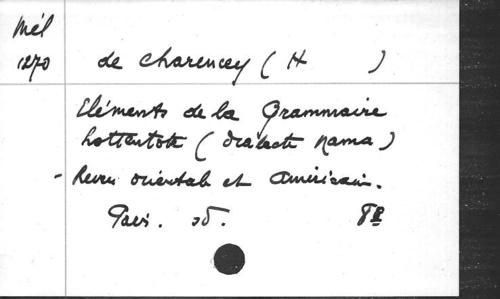 Mél
1270
de Charencey (H )
Eléments de la Grammaire
hottentote (dialecte Nama)
- Revue orientale et américaine.
Paris. sd. 8º